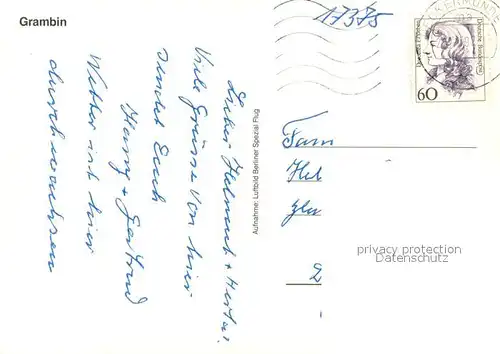 Grambin
Lieber Helmut + Herta.
Viele Grüsse von hier
sendet Euch
Harry + Gertrud
Wetter ist hier
durchwachsen
Aufnahme: Luftbild Berliner Spezial Flug
17375
Deutsche Bundespost
60
Fam
Hel
2
privacy protection
Datenschutz